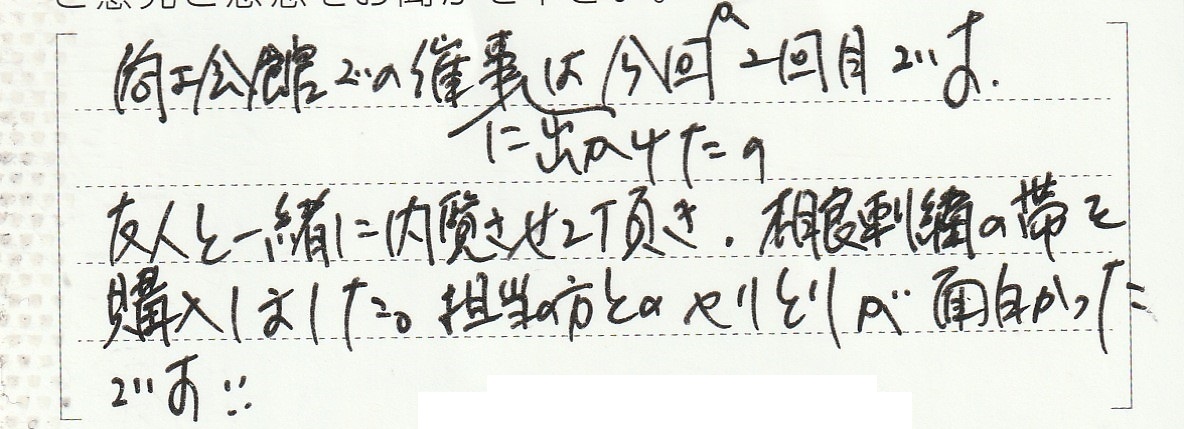 ご意見ご感想をお聞かせ下さい。
商工会館での催事は今回が2回目です.
に出かけたの
友人と一緒に内覧させて頂き、相良刺繍の帯を
購入しました。担当の方とのやりとりが面白かった
です∵